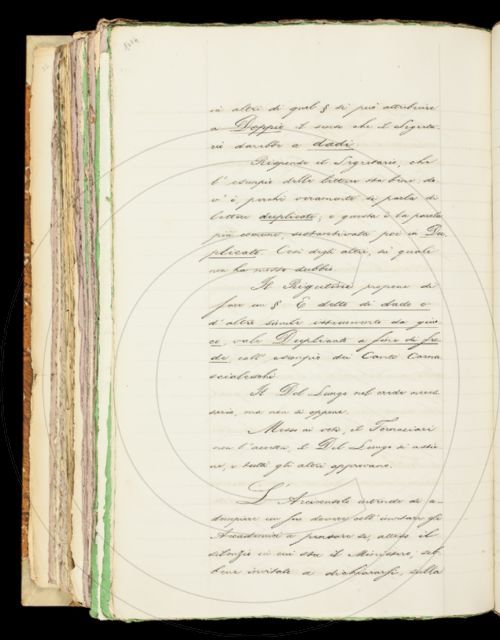 in altri di qual § si può attribuire
a Doppio il senso che il Segreta-
rio darebbe a dadi.
Risponde il Segretario, che
l'esempio delle lettere sta bene do-
v'è, perchè veramente si parla di
lettere duplicate; e questa è la parola
più comune, sott'archiviata poi in Du
plicato. Così degli altri, su' quali
non ha mosso dubbio.
Il Rigutini propone di
fare un § E detto di dado o
d'altro simile istrumento da giuo-
co, vale Duplicato a fine di fro-
de coll'esempio dei Canti Carna
scialeschi.
Il Del Lungo nol crede neces-
sario, ma non si oppone.
Messo ai voti, il Fornaciari
non l'accetta, il Del Lungo si astie-
ne, e tutti gli altri approvano.
L'Arciconsolo intende di a-
dempiere un suo dovere coll'invitare gli
Accademici a pensare se, atteso il
silenzio in cui sta il Ministero, seb-
bene invitato a dichiararsi, sulla